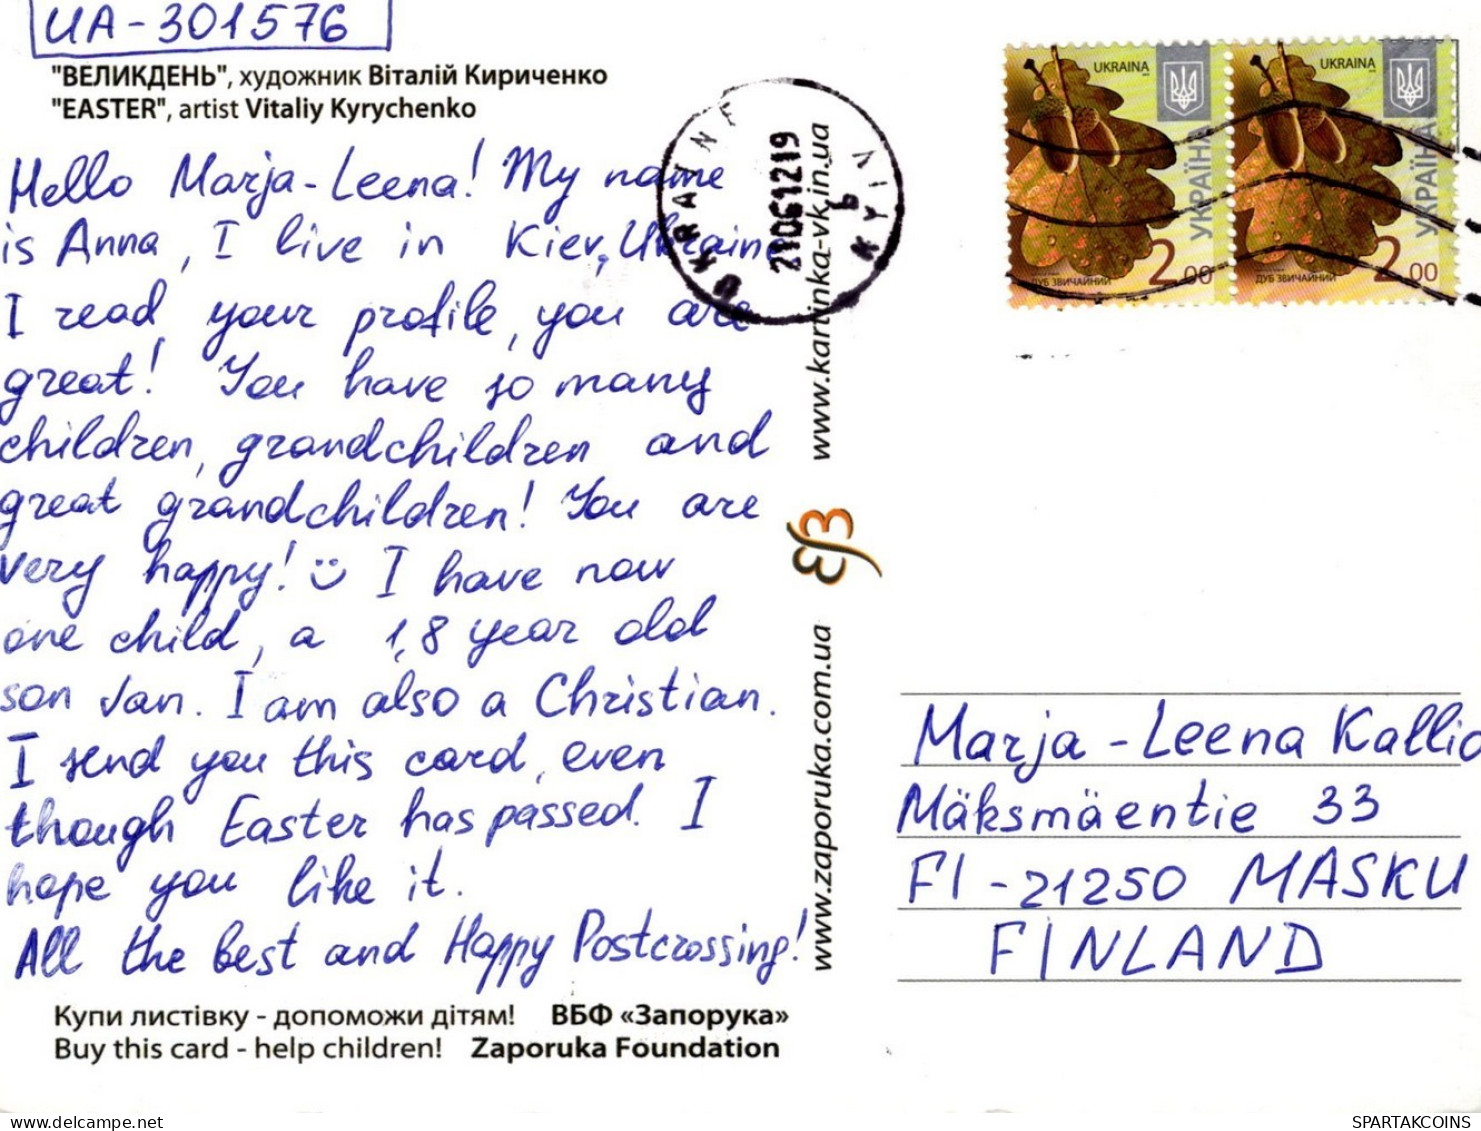 UA-301576
"ВЕЛИКДЕНЬ", художник Віталій Кириченко
"EASTER", artist Vitaliy Kyrychenko
Hello Marja-Leena! My name
is Anna, I live in Kiev, Ukraine
I read your profile, you are
great! You have so many
children, grandchildren and
great grandchildren! You are
very happy! I have now
one child, a 1,8 year old
son Jan. I am also a Christian.
I send you this card, even
though Easter has passed. I
hope you like it.
All the best and Happy Postcrossing!
Купи листівку - допоможи дітям! ВБФ «Запорука»
Buy this card - help children! Zaporuka Foundation
UKRAINE
21061219
6
KYIV
www.kartinka-vk.in.ua
www.zaporuka.com.ua
UKRAINA
УКРАЇНА
2.00
ДУБ ЗВИЧАЙНИЙ
UKRAINA
УКРАЇНА
2.00
ДУБ ЗВИЧАЙНИЙ
Marja-Leena Kallio
Mäksmäentie 33
FI-21250 MASKU
FINLAND
SPARTAKCOINS.COM